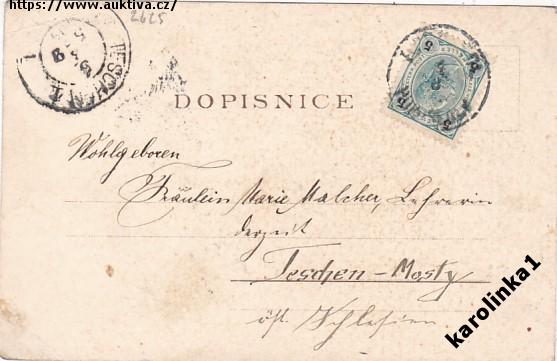 https://www.auktiva.cz/
2625
TESCHEN 1
DOPISNICE
Wohlgeboren
Fräulein Marie Malcher, Lehrerin
derzeit
Teschen-Mosty
öst. Schlesien
karolinka1